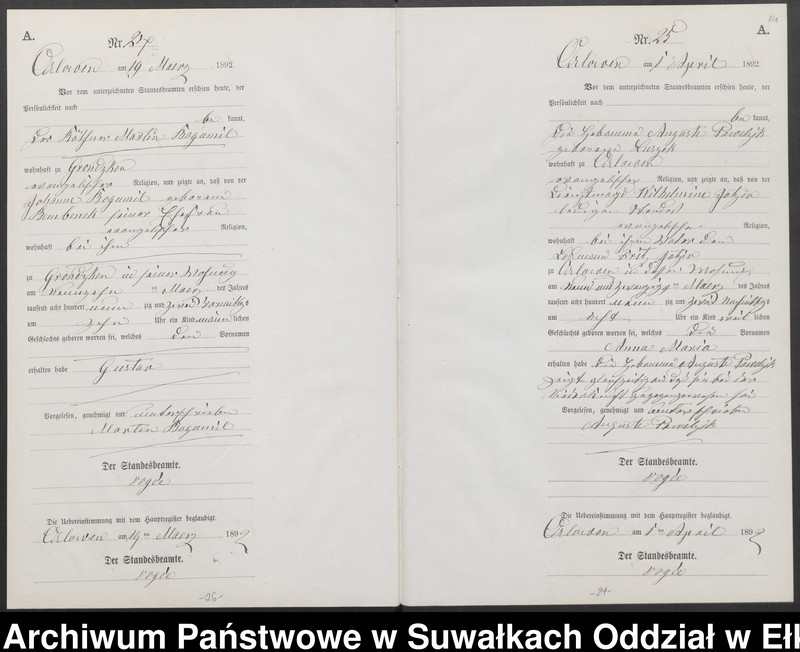 A.
Nr. 24
Orlowen am 19 Maerz 1892
Vor dem unterzeichneten Standesbeamten erschien heute, der
Persönlichkeit nach
be kannt,
Der Käthner Martin Bogumil
wohnhaft zu Grondzken
evangelischer Religion, und zeigte an, daß von der
Johanne Bogumil geborenen
Bembenek seiner Ehefrau
evangelischer Religion,
wohnhaft bei ihm
zu Grondzken in seiner Wohnung
am Neunzehn ten Maerz des Jahres
tausend acht hundert neun zig und zwei Vormittags
um zehn Uhr ein Kind männ lichen
Geschlechts geboren worden sei, welches den Vornamen
Gustav
erhalten habe
Vorgelesen, genehmigt und unterschrieben
Martin Bogumil
Der Standesbeamte.
Vogée
Die Uebereinstimmung mit dem Hauptregister beglaubigt.
Orlowen am 19 ten Maerz 1892
Der Standesbeamte.
Vogée
-26-
A.
Nr. 25
Orlowen am 1 April 1892
Vor dem unterzeichneten Standesbeamten erschien heute, der
Persönlichkeit nach
be kannt,
Die Hebamme Auguste Pawelzik
geborene
wohnhaft zu Orlowen
evangelischer Religion, und zeigte an, daß von der
Dienstmagd Wilhelmine
ledigen Standes
evangelischer Religion,
wohnhaft bei ihrem Vater dem
Fritz
zu Orlowen in dessen Wohnung
am Neun und Zwanzigs ten Maerz des Jahres
tausend acht hundert neun zig und zwei Nachmittags
um acht Uhr ein Kind weib lichen
Geschlechts geboren worden sei, welches die Vornamen
Anna Maria
erhalten habe Die Hebamme Auguste Pawelzik
zeigte gleichzeitig an daß sie bei der
Niederkunft zugegen gewesen sei
Vorgelesen, genehmigt und unterschrieben
Auguste Pawelzik
Der Standesbeamte.
Vogée
Die Uebereinstimmung mit dem Hauptregister beglaubigt.
Orlowen am 1 ten April 1892
Der Standesbeamte.
Vogée
Archiwum Państwowe w Suwałkach Oddział w Ełk